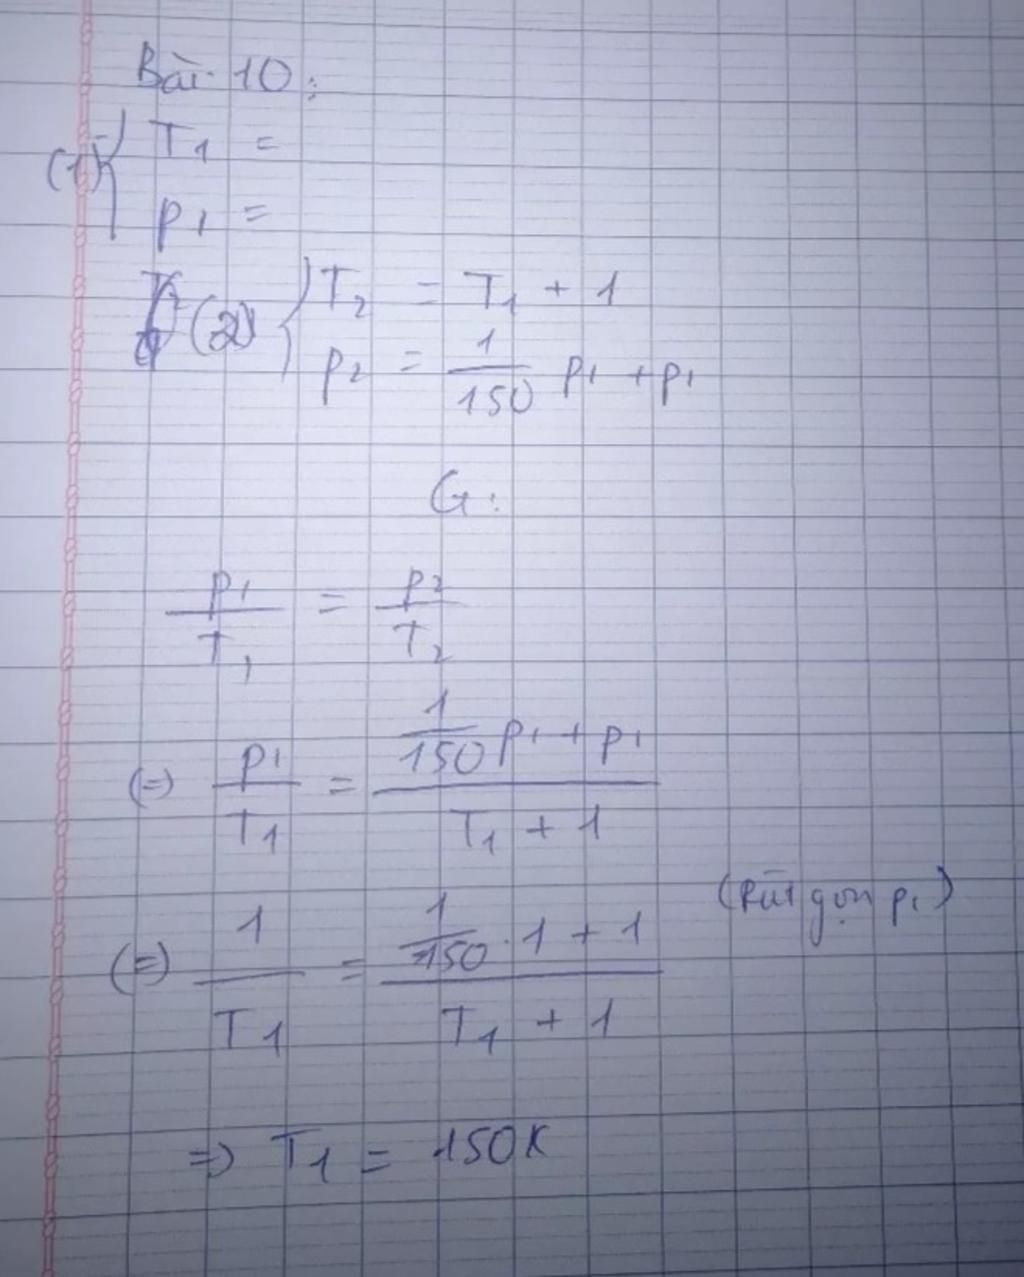 Bài 10:
(1) { T₁ =
p₁ =
(2) { T₂ = T₁ + 1
p₂ = 1/150 p₁ + p₁
G:
p₁/T₁ = p₂/T₂
(=) p₁/T₁ = (1/150 p₁ + p₁)/(T₁ + 1)
(=) 1/T₁ = (1/150 . 1 + 1)/(T₁ + 1) (Rút gọn p₁)
=> T₁ = 150K